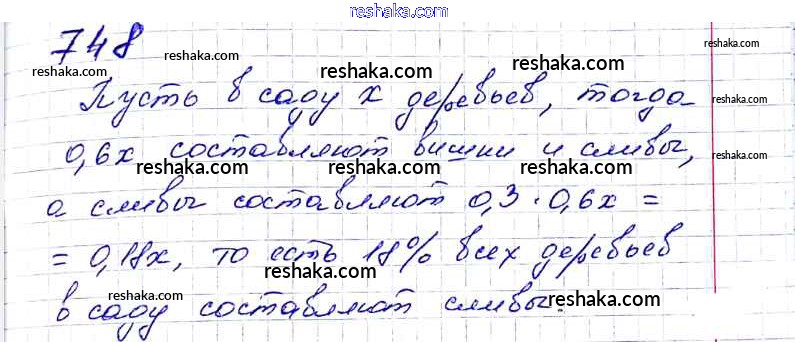 reshaka.com
748
reshaka.com reshaka.com
reshaka.com
Пусть в саду х деревьев, тогда
reshaka.com
0,6х составляют вишни и сливы,
reshaka.com reshaka.com
reshaka.com
а сливы составляют 0,3 · 0,6х =
reshaka.com reshaka.com
= 0,18х, то есть 18% всех деревьев
reshaka.com
в саду составляют сливы.
reshaka.com